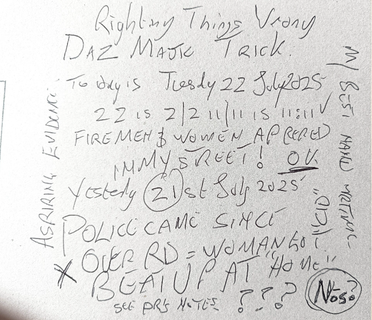 Righting Things Vrony
DAZ MAJIK TRICK.
Today is Tuesdy 22 July 2025
22 is 2/2 11/11 is 11:11
FIREMEN & WOMEN APPERED
IN MY STREET! OK
Yestedy 21st July 2025
POLICE CAME SINCE
OVER RD = WOMAN GOT
BEAT UP AT "HOME"
SEE PRS NOTES ? ? ?
Nos?
ASPIRING EVIDENCE
MY BEST HAND WRITING